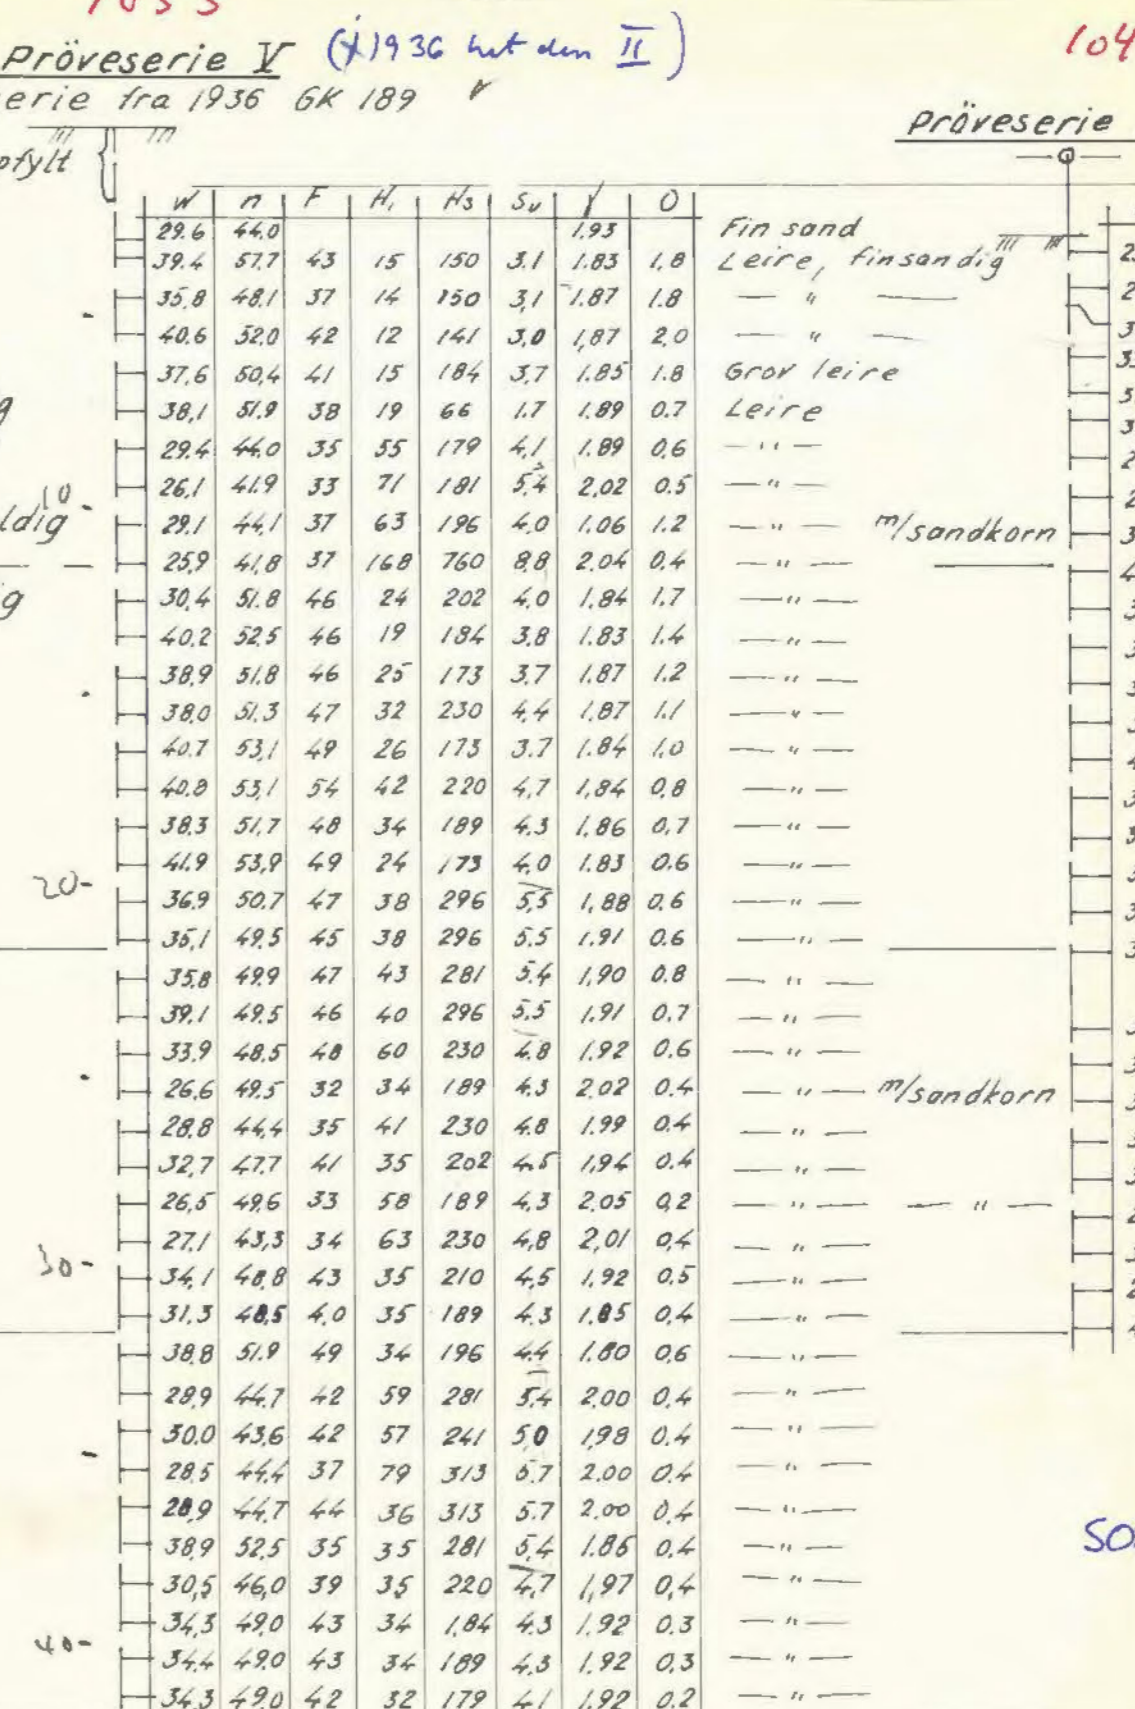 Pröveserie V (i 1936 het den II)
104
serie fra 1936 GK 189
Pröveserie
W n F H1 H3 Su γ O
29.6 44.0 1.93 Fin sand
39.4 57.7 43 15 150 3.1 1.83 1.8 Leire, finsandig
35.8 48.1 37 14 150 3,1 1.87 1.8 — " —
40.6 52.0 42 12 141 3,0 1,87 2.0 — " —
37.6 50,4 41 15 184 3.7 1.85 1.8 Grov leire
38,1 51.9 38 19 66 1.7 1.89 0.7 Leire
29.4 44.0 35 55 179 4,1 1.89 0.6 — " —
10
26,1 41.9 33 71 181 5,4 2,02 0.5 — " —
ldig 29.1 44,1 37 63 196 4.0 1.06 1.2 — " — m/sandkorn
25,9 41,8 37 168 760 8,8 2,04 0,4 — " —
30,4 51.8 46 24 202 4,0 1.84 1.7 — " —
40.2 52.5 46 19 184 3,8 1.83 1.4 — " —
38,9 51.8 46 25 173 3.7 1.87 1.2 — " —
38.0 51.3 47 32 230 4,4 1,87 1.1 — " —
40.7 53,1 49 26 173 3.7 1.84 1,0 — " —
40.8 53,1 54 42 220 4,7 1,84 0,8 — " —
38.3 51,7 48 34 189 4.3 1.86 0,7 — " —
41.9 53,9 49 24 173 4,0 1.83 0.6 — " —
20- 36.9 50.7 47 38 296 5,5 1,88 0.6 — " —
35,1 49.5 45 38 296 5.5 1.91 0.6 — " —
35,8 49.9 47 43 281 5.4 1,90 0.8 — " —
39.1 49.5 46 40 296 5.5 1.91 0.7 — " —
33.9 48.5 48 60 230 4.8 1.92 0.6 — " —
26.6 49.5 32 34 189 4.3 2.02 0.4 — " — m/sandkorn
28.8 44,4 35 41 230 4.8 1.99 0.4 — " —
32,7 47.7 41 35 202 4.5 1,94 0.4 — " —
26,5 49,6 33 58 189 4,3 2,05 0,2 — " — — " —
27.1 43,3 34 63 230 4,8 2,01 0,4 — " —
30- 34,1 48,8 43 35 210 4,5 1,92 0,5 — " —
31,3 48,5 4,0 35 189 4.3 1.85 0,4 — " —
38.8 51.9 49 34 196 4.4 1.80 0,6 — " —
28,9 44.7 42 59 281 5,4 2.00 0,4 — " —
30.0 43,6 42 57 241 5,0 1,98 0.4 — " —
28,5 44,4 37 79 313 5.7 2.00 0.4 — " —
28,9 44,7 44 36 313 5.7 2.00 0,4 — " —
38,9 52,5 35 35 281 5,4 1.86 0,4 — " —
30,5 46,0 39 35 220 4,7 1,97 0,4 — " —
34,3 49,0 43 34 1,84 4.3 1.92 0.3 — " —
40- 34.4 49.0 43 34 189 4,3 1.92 0,3 — " —
34,3 49.0 42 32 179 4.1 1.92 0.2 — " —